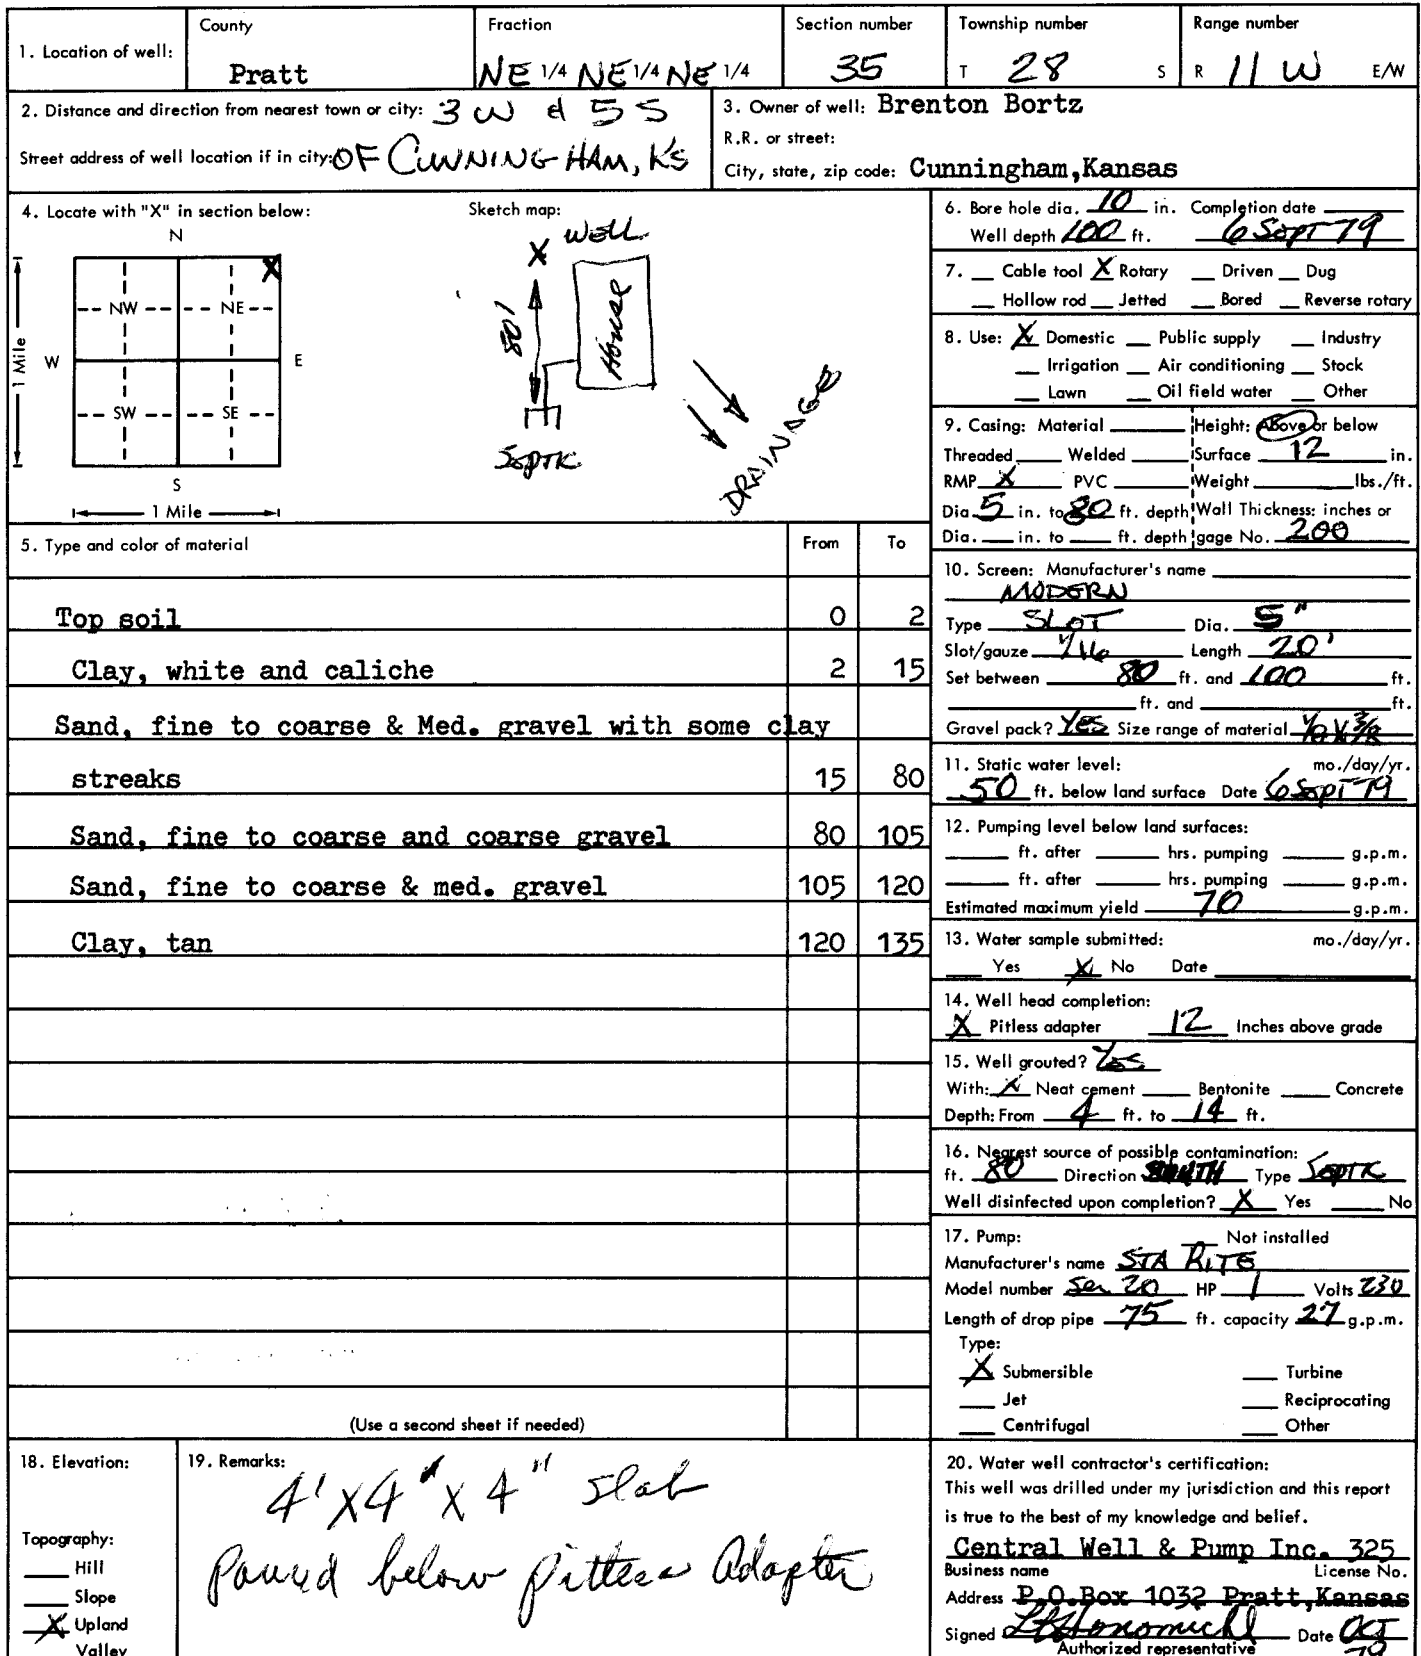 1. Location of well: County Pratt Fraction NE 1/4 NE 1/4 NE 1/4 Section number 35 Township number T 28 S Range number R 11 W E/W
2. Distance and direction from nearest town or city: 3 W & 5 S
Street address of well location if in city: OF CUNNINGHAM, KS
3. Owner of well: Brenton Bortz
R.R. or street:
City, state, zip code: Cunningham,Kansas
4. Locate with "X" in section below:
N
X
NW NE
W E
SW SE
S
1 Mile
1 Mile
Sketch map:
X WELL
80'
House
SEPTIC
DRAINAGE
5. Type and color of material From To
Top soil 0 2
Clay, white and caliche 2 15
Sand, fine to coarse & Med. gravel with some clay
streaks 15 80
Sand, fine to coarse and coarse gravel 80 105
Sand, fine to coarse & med. gravel 105 120
Clay, tan 120 135
(Use a second sheet if needed)
6. Bore hole dia. 10 in. Completion date
Well depth 100 ft. 6 SEPT 79
7. Cable tool X Rotary Driven Dug
Hollow rod Jetted Bored Reverse rotary
8. Use: X Domestic Public supply Industry
Irrigation Air conditioning Stock
Lawn Oil field water Other
9. Casing: Material Height: Above or below
Threaded Welded Surface 12 in.
RMP X PVC Weight lbs./ft.
Dia. 5 in. to 80 ft. depth Wall Thickness: inches or
Dia. in. to ft. depth gage No. 200
10. Screen: Manufacturer's name
MODERN
Type SLOT Dia. 5"
Slot/gauze 1/16 Length 20'
Set between 80 ft. and 100 ft.
ft. and ft.
Gravel pack? YES Size range of material
11. Static water level: mo./day/yr.
50 ft. below land surface Date 6 SEPT 79
12. Pumping level below land surfaces:
ft. after hrs. pumping g.p.m.
ft. after hrs. pumping g.p.m.
Estimated maximum yield 70 g.p.m.
13. Water sample submitted: mo./day/yr.
Yes X No Date
14. Well head completion:
X Pitless adapter 12 Inches above grade
15. Well grouted? Yes
With: X Neat cement Bentonite Concrete
Depth: From 4 ft. to 14 ft.
16. Nearest source of possible contamination:
ft. 80 Direction SOUTH Type SEPTIC
Well disinfected upon completion? X Yes No
17. Pump: Not installed
Manufacturer's name STA RITE
Model number Ser 20 HP 1 Volts 230
Length of drop pipe 75 ft. capacity 27 g.p.m.
Type:
X Submersible Turbine
Jet Reciprocating
Centrifugal Other
18. Elevation:
Topography:
Hill
Slope
X Upland
Valley
19. Remarks:
4' X 4" X 4" slab
Poured below pitless Adapter
20. Water well contractor's certification:
This well was drilled under my jurisdiction and this report
is true to the best of my knowledge and belief.
Central Well & Pump Inc. 325
Business name License No.
Address P.O.Box 1032 Pratt,Kansas
Signed Honomichl Date OCT
Authorized representative 79